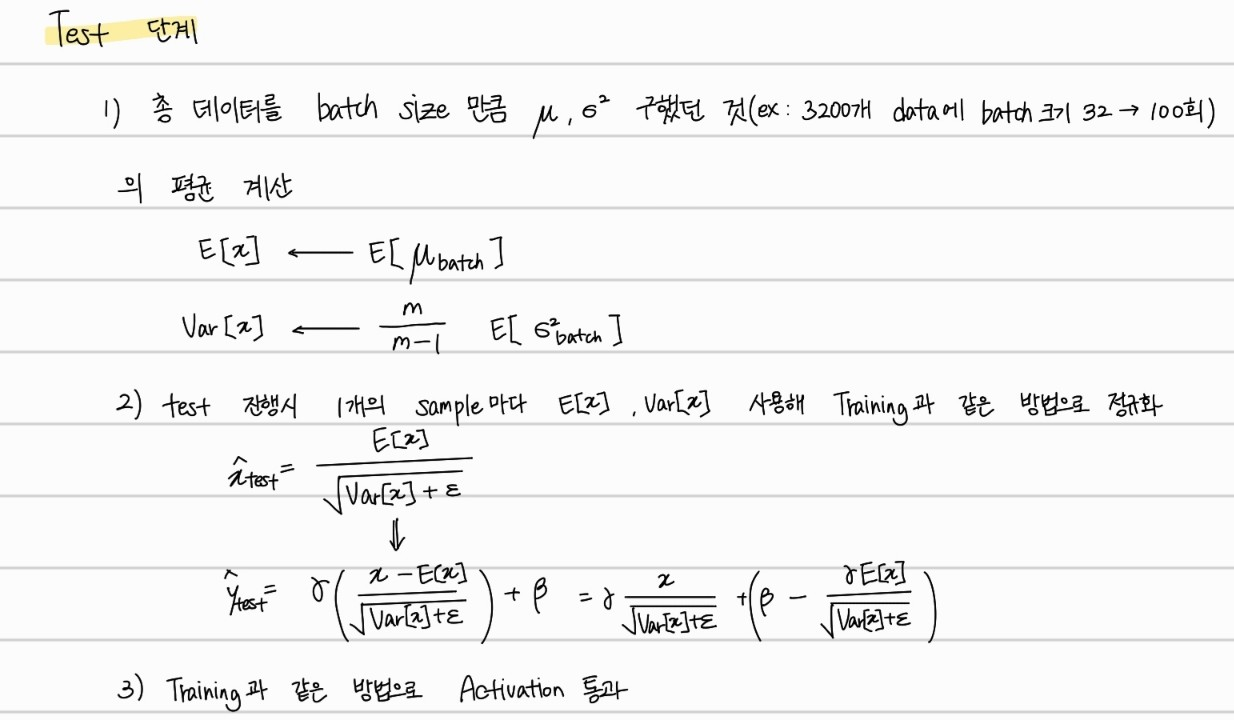 Test 단계
1) 총 데이터를 batch size 만큼 μ, σ² 구했던 것(ex: 3200개 data에 batch 크기 32 → 100회)
의 평균 계산
E[x] ← E[μ_batch]
Var[x] ← m/(m-1) E[σ²_batch]
2) test 진행시 1개의 sample 마다 E[x], Var[x] 사용해 Training과 같은 방법으로 정규화
x̂_test = E[x] / √(Var[x] + ε)
⇓
ŷ_test = γ( (x - E[x]) / √(Var[x]+ε) ) + β = γ x / √(Var[x]+ε) + (β - γE[x] / √(Var[x]+ε))
3) Training과 같은 방법으로 Activation 통과